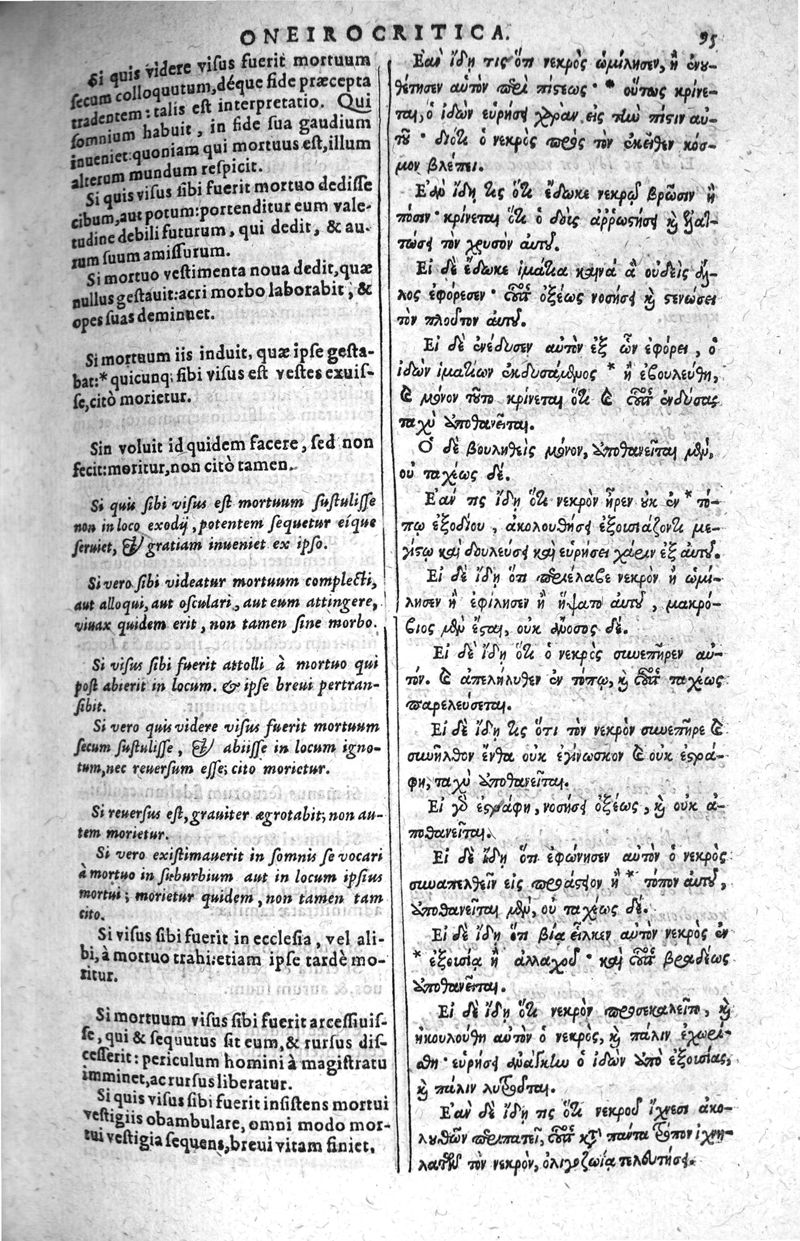 ONEIROCRITICA.
95
Si quis videre visus fuerit mortuum
secum colloquutum, déque fide præcepta
tradentem: talis est interpretatio. Qui
somnium habuit, in fide sua gaudium
inueniet: quoniam qui mortuus est, illum
alterum mundum respicit.
Si quis visus sibi fuerit mortuo dedisse
cibum, aut potum: portenditur eum vale-
tudine debili futurum, qui dedit, & au-
rum suum amissurum.
Si mortuo vestimenta noua dedit, quæ
nullus gestauit: acri morbo laborabit, &
opes suas deminuet.
Si mortuum iis induit, quæ ipse gesta-
bat:* quicunq; sibi visus est vestes exuis-
se, citò morietur.
Sin voluit id quidem facere, sed non
fecit: moritur, non citò tamen.
Si quis sibi visus est mortuum sustulisse
non in loco exodij, potentem sequetur eique
seruiet, & gratiam inueniet ex ipso.
Si vero sibi videatur mortuum complecti,
aut alloqui, aut osculari, aut eum attingere,
viuax quidem erit, non tamen sine morbo.
Si visus sibi fuerit attolli à mortuo qui
post abierit in locum. & ipse breui pertran-
sibit.
Si vero quis videre visus fuerit mortuum
secum sustulisse, & abiisse in locum igno-
tum, nec reuersum esse; cito morietur.
Si reuersus est, grauiter ægrotabit; non au-
tem morietur.
Si vero existimauerit in somnis se vocari
à mortuo in suburbium aut in locum ipsius
mortui; morietur quidem, non tamen tam
cito.
Si visus sibi fuerit in ecclesia, vel ali-
bi, à mortuo trahi: etiam ipse tardè mo-
ritur.
Si mortuum visus sibi fuerit arcessiuis-
se, qui & sequutus sit eum, & rursus dis-
cesserit: periculum homini à magistratu
imminet, ac rursus liberatur.
Si quis visus sibi fuerit insistens mortui
vestigiis obambulare, omni modo mor-
tui vestigia sequens, breui vitam finiet.
Ἐὰν ἴδῃ τις ὅτι νεκρὸς ὡμίλησεν, ἢ ἐνου-
θέτησεν αὐτὸν περὶ πίστεως· * οὕτως κρίνε-
ται, ὁ ἰδὼν εὑρήσει χαρὰν εἰς τὴν πίστιν αὐ-
τοῦ· διότι ὁ νεκρὸς πρὸς τὸν ἐκεῖθεν κόσ-
μον βλέπει.
Ἐὰν ἴδῃ τις ὅτι ἔδωκε νεκρῷ βρῶσιν ἢ
πόσιν· κρίνεται ὅτι ὁ δοὺς ἀῤῥωστήσει καὶ ἐλατ-
τώσει τὸν χρυσὸν αὐτοῦ.
Εἰ δὲ ἔδωκε ἱμάτια καινὰ ἃ οὐδεὶς ἄλ-
λος ἐφόρεσεν· οὗτος ὀξέως νοσήσει καὶ στενώσει
τὸν πλοῦτον αὐτοῦ.
Εἰ δὲ ἐνέδυσεν αὐτὸν ἐξ ὧν ἐφόρει, ὁ
ἰδὼν ἱματίων ἐκδυσάμενος * ἢ ἐβουλεύθη,
καὶ μόνον τοῦτο κρίνεται ὅτι καὶ οὗτος ἐνδύσας
ταχὺ ἀποθανεῖται.
Ὁ δὲ βουληθεὶς μόνον, ἀποθανεῖται μὲν,
οὐ ταχέως δέ.
Ἐὰν τις ἴδῃ ὅτι νεκρὸν ᾖρεν οὐκ ἐν * τό-
πῳ ἐξοδίου, ἀκολουθήσει ἐξουσιάζοντι με-
γίστῳ καὶ δουλεύσει καὶ εὑρήσει χάριν ἐξ αὐτοῦ.
Εἰ δὲ ἴδῃ ὅτι περιέλαβε νεκρὸν ἢ ὡμί-
λησεν ἢ ἐφίλησεν ἢ ἥψατο αὐτοῦ, μακρό-
βιος μὲν ἔσται, οὐκ ἄνοσος δέ.
Εἰ δὲ ἴδῃ ὅτι ὁ νεκρὸς συνεπῆρεν αὐ-
τόν. καὶ ἀπελήλυθεν ἐν τόπῳ, καὶ οὗτος ταχέως
παρελεύσεται.
Εἰ δὲ ἴδῃ τις ὅτι τὸν νεκρὸν συνεπῆρε καὶ
συνῆλθον ἔνθα οὐκ ἐγίνωσκον καὶ οὐκ ἐστρά-
φη, ταχὺ ἀποθανεῖται.
Εἰ γὰρ ἐστράφη, νοσήσει ὀξέως, καὶ οὐκ ἀ-
ποθανεῖται.
Εἰ δὲ ἴδῃ ὅτι ἐφώνησεν αὐτὸν ὁ νεκρὸς
συναπελθεῖν εἰς προάστιον ἢ * τόπον αὐτοῦ,
ἀποθανεῖται μὲν, οὐ ταχέως δέ.
Εἰ δὲ ἴδῃ ὅτι βίᾳ εἷλκεν αὐτὸν νεκρὸς ἐν
* ἐξουσίᾳ ἢ ἀλλαχοῦ· καὶ οὗτος βραδέως
ἀποθανεῖται.
Εἰ δὲ ἴδῃ ὅτι νεκρὸν προσεκαλεῖτο, καὶ
ἠκολούθη αὐτὸν ὁ νεκρὸς, καὶ πάλιν ἐχωρί-
σθη· εὑρήσει ἀνάγκην ὁ ἰδὼν ὑπὸ ἐξουσίας,
καὶ πάλιν λυτροῦται.
Ἐὰν δὲ ἴδῃ τις ὅτι νεκροῦ ἴχνεσι ἀκο-
λουθῶν περιπατεῖ, οὗτος κατὰ πάντα τρόπον ἰχνη-
λατῶν τὸν νεκρὸν, ὀλιγοζωίᾳ τελευτήσει.